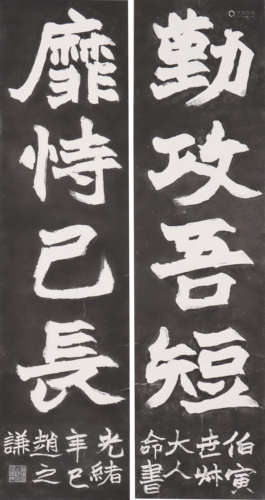 勤攻吾短
伯寅
世叔
大人
命書
靡恃己長
光緒
辛巳
趙之
謙